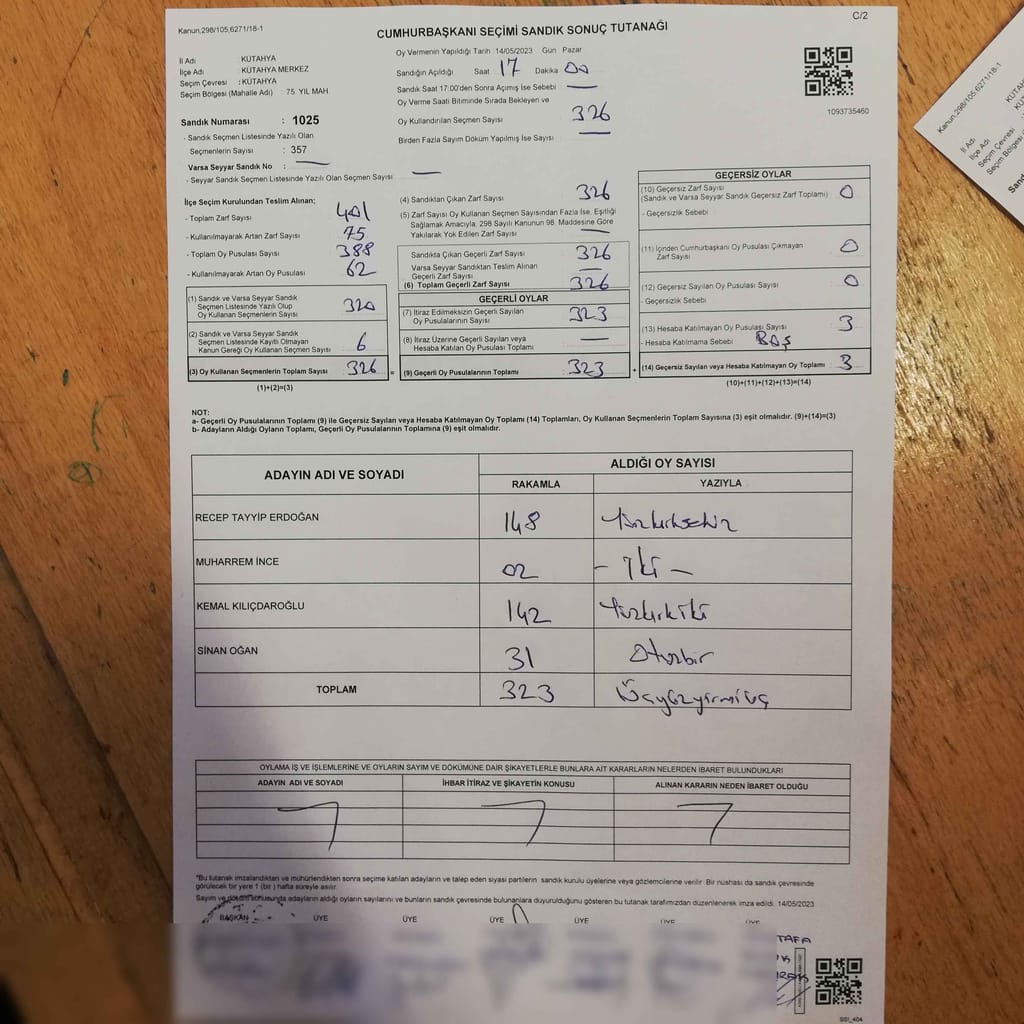 C/2
Kanun,298/105,6271/18-1
CUMHURBAŞKANI SEÇİMİ SANDIK SONUÇ TUTANAĞI
İl Adı : KÜTAHYA
İlçe Adı : KÜTAHYA MERKEZ
Seçim Çevresi : KÜTAHYA
Seçim Bölgesi (Mahalle Adı) : 75. YIL MAH
Oy Vermenin Yapıldığı Tarih 14/05/2023 Gün Pazar
Sandığın Açıldığı Saat 17 Dakika 00
Sandık Saat 17:00'den Sonra Açımış İse Sebebi —
Oy Verme Saati Bitiminde Sırada Bekleyen ve
Oy Kullandırılan Seçmen Sayısı 326
Birden Fazla Sayım Döküm Yapılmış İse Sayısı —
1093735460
Sandık Numarası : 1025
- Sandık Seçmen Listesinde Yazılı Olan
Seçmenlerin Sayısı : 357
Varsa Seyyar Sandık No : —
- Seyyar Sandık Seçmen Listesinde Yazılı Olan Seçmen Sayısı —
İlçe Seçim Kurulundan Teslim Alınan;
- Toplam Zarf Sayısı 401
- Kullanılmayarak Artan Zarf Sayısı 75
- Toplam Oy Pusulası 388
- Kullanılmayarak Artan Oy Pusulası 62
(1) Sandık ve Varsa Seyyar Sandık
Seçmen Listesinde Yazılı Olup
Oy Kullanan Seçmen Sayısı 320
(2) Sandık ve Varsa Seyyar Sandık
Seçmen Listesinde Kayıtlı Olmayan
Kanun Gereği Oy Kullanan Seçmen Sayısı 6
(3) Oy Kullanan Seçmenlerin Toplam Sayısı 326 =
(1)+(2)=(3)
(4) Sandıktan Çıkan Zarf Sayısı 326
(5) Zarf Sayısı Oy Kullanan Seçmen Sayısından Fazla İse, Eşitliği
Sağlamak Amacıyla; 298 Sayılı Kanunun 98. Maddesine Göre
Yakılarak Yok Edilen Zarf Sayısı —
Sandıkta Çıkan Geçerli Zarf Sayısı 326
Varsa Seyyar Sandıktan Teslim Alınan
Geçerli Zarf Sayısı —
(6) Toplam Geçerli Zarf Sayısı 326
GEÇERLİ OYLAR
(7) İtiraz Edilmeksizin Geçerli Sayılan
Oy Pusulalarının Sayısı 323
(8) İtiraz Üzerine Geçerli Sayılan veya
Hesaba Katılan Oy Pusulası Toplamı —
(9) Geçerli Oy Pusulalarının Toplamı 323 +
GEÇERSİZ OYLAR
(10) Geçersiz Zarf Sayısı
(Sandık ve Varsa Sandık Geçersiz Zarf Toplamı) 0
- Geçersizlik Sebebi
(11) İçinden Cumhurbaşkanı Oy Pusulası Çıkmayan
Zarf Sayısı 0
(12) Geçersiz Sayılan Oy Pusulası Sayısı 0
- Geçersizlik Sebebi
(13) Hesaba Katılmayan Oy Pusulası Sayısı 3
- Hesaba Katılmama Sebebi BOŞ
(14) Geçersiz Sayılan veya Hesaba Katılmayan Oy Toplamı 3
(10)+(11)+(12)+(13)=(14)
NOT:
a- Geçerli Oy Pusulalarının Toplamı (9) ile Geçersiz Sayılan veya Hesaba Katılmayan Oy Toplamı (14) Toplamları, Oy Kullanan Seçmenlerin Toplam Sayısına (3) eşit olmalıdır. (9)+(14)=(3)
b- Adayların Aldığı Oyların Toplamı, Geçerli Oy Pusulalarının Toplamına (9) eşit olmalıdır.
ADAYIN ADI VE SOYADI ALDIĞI OY SAYISI
RAKAMLA YAZIYLA
RECEP TAYYİP ERDOĞAN 148 Yüzkırksekiz
MUHARREM İNCE 02 - İki -
KEMAL KILIÇDAROĞLU 142 Yüzkırkiki
SİNAN OĞAN 31 Otuzbir
TOPLAM 323 Üçyüzyirmiüç
OYLAMA İŞ VE İŞLEMLERİNE VE OYLARIN SAYIM VE DÖKÜMÜNE DAİR ŞİKAYETLERLE BUNLARA AİT KARARLARIN NELERDEN İBARET BULUNDUKLARI
ADAYIN ADI VE SOYADI İHBAR İTİRAZ VE ŞİKAYETİN KONUSU ALINAN KARARIN NEDEN İBARET OLDUĞU
*Bu tutanak imzalandıktan ve mühürlendikten sonra seçime katılan adayların ve talep eden siyasi partilerin sandık kurulu üyelerine veya gözlemcilerine verilir. Bir nüshası da sandık çevresinde
görülecek bir yere 1 (bir) hafta süreyle asılır.
Sayım ve döküm sonucunda adayların aldığı oyların sayısını ve bunların sandık çevresinde bulunanlara duyurulduğunu gösteren bu tutanak tarafımızdan düzenlenerek imza edildi. 14/05/2023
BAŞKAN ÜYE ÜYE ÜYE ÜYE ÜYE ÜYE
SSI_404
Kanun,298/105,6271/18-1
İl Adı
İlçe Adı
Seçim Çevresi
Seçim Bölgesi